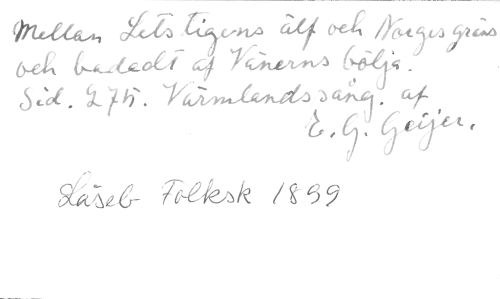 Mellan Letstigens älf och Norges gräns
och badadt af Vänerns bölja.
Sid. 275. Värmlandssång. af
E. G. Geijer.
Läseb Folksk 1899